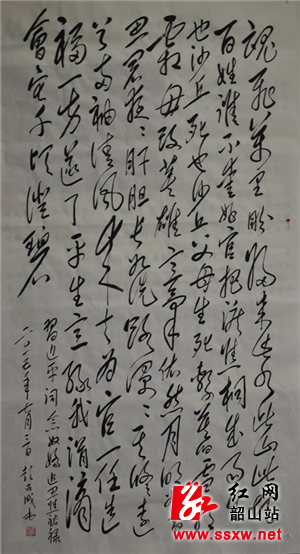 魂飛萬里盼歸来此水此山此地
百姓谁不爱好官把淚焦桐成雨生
也沙丘死也沙丘父老生死繫暮雪朝
霜毋改英雄意氣依然月明如昔
思君夜夜肝胆长如洗路漫漫其修遠
矣兩袖清風来去为官一任造
福一方遂了平生意绿我涓滴
會它千顷澄碧
習近平词念奴嬌追思焦裕禄
二〇一五年七月三日
红网
韶山站
WWW.SSXXW.COM